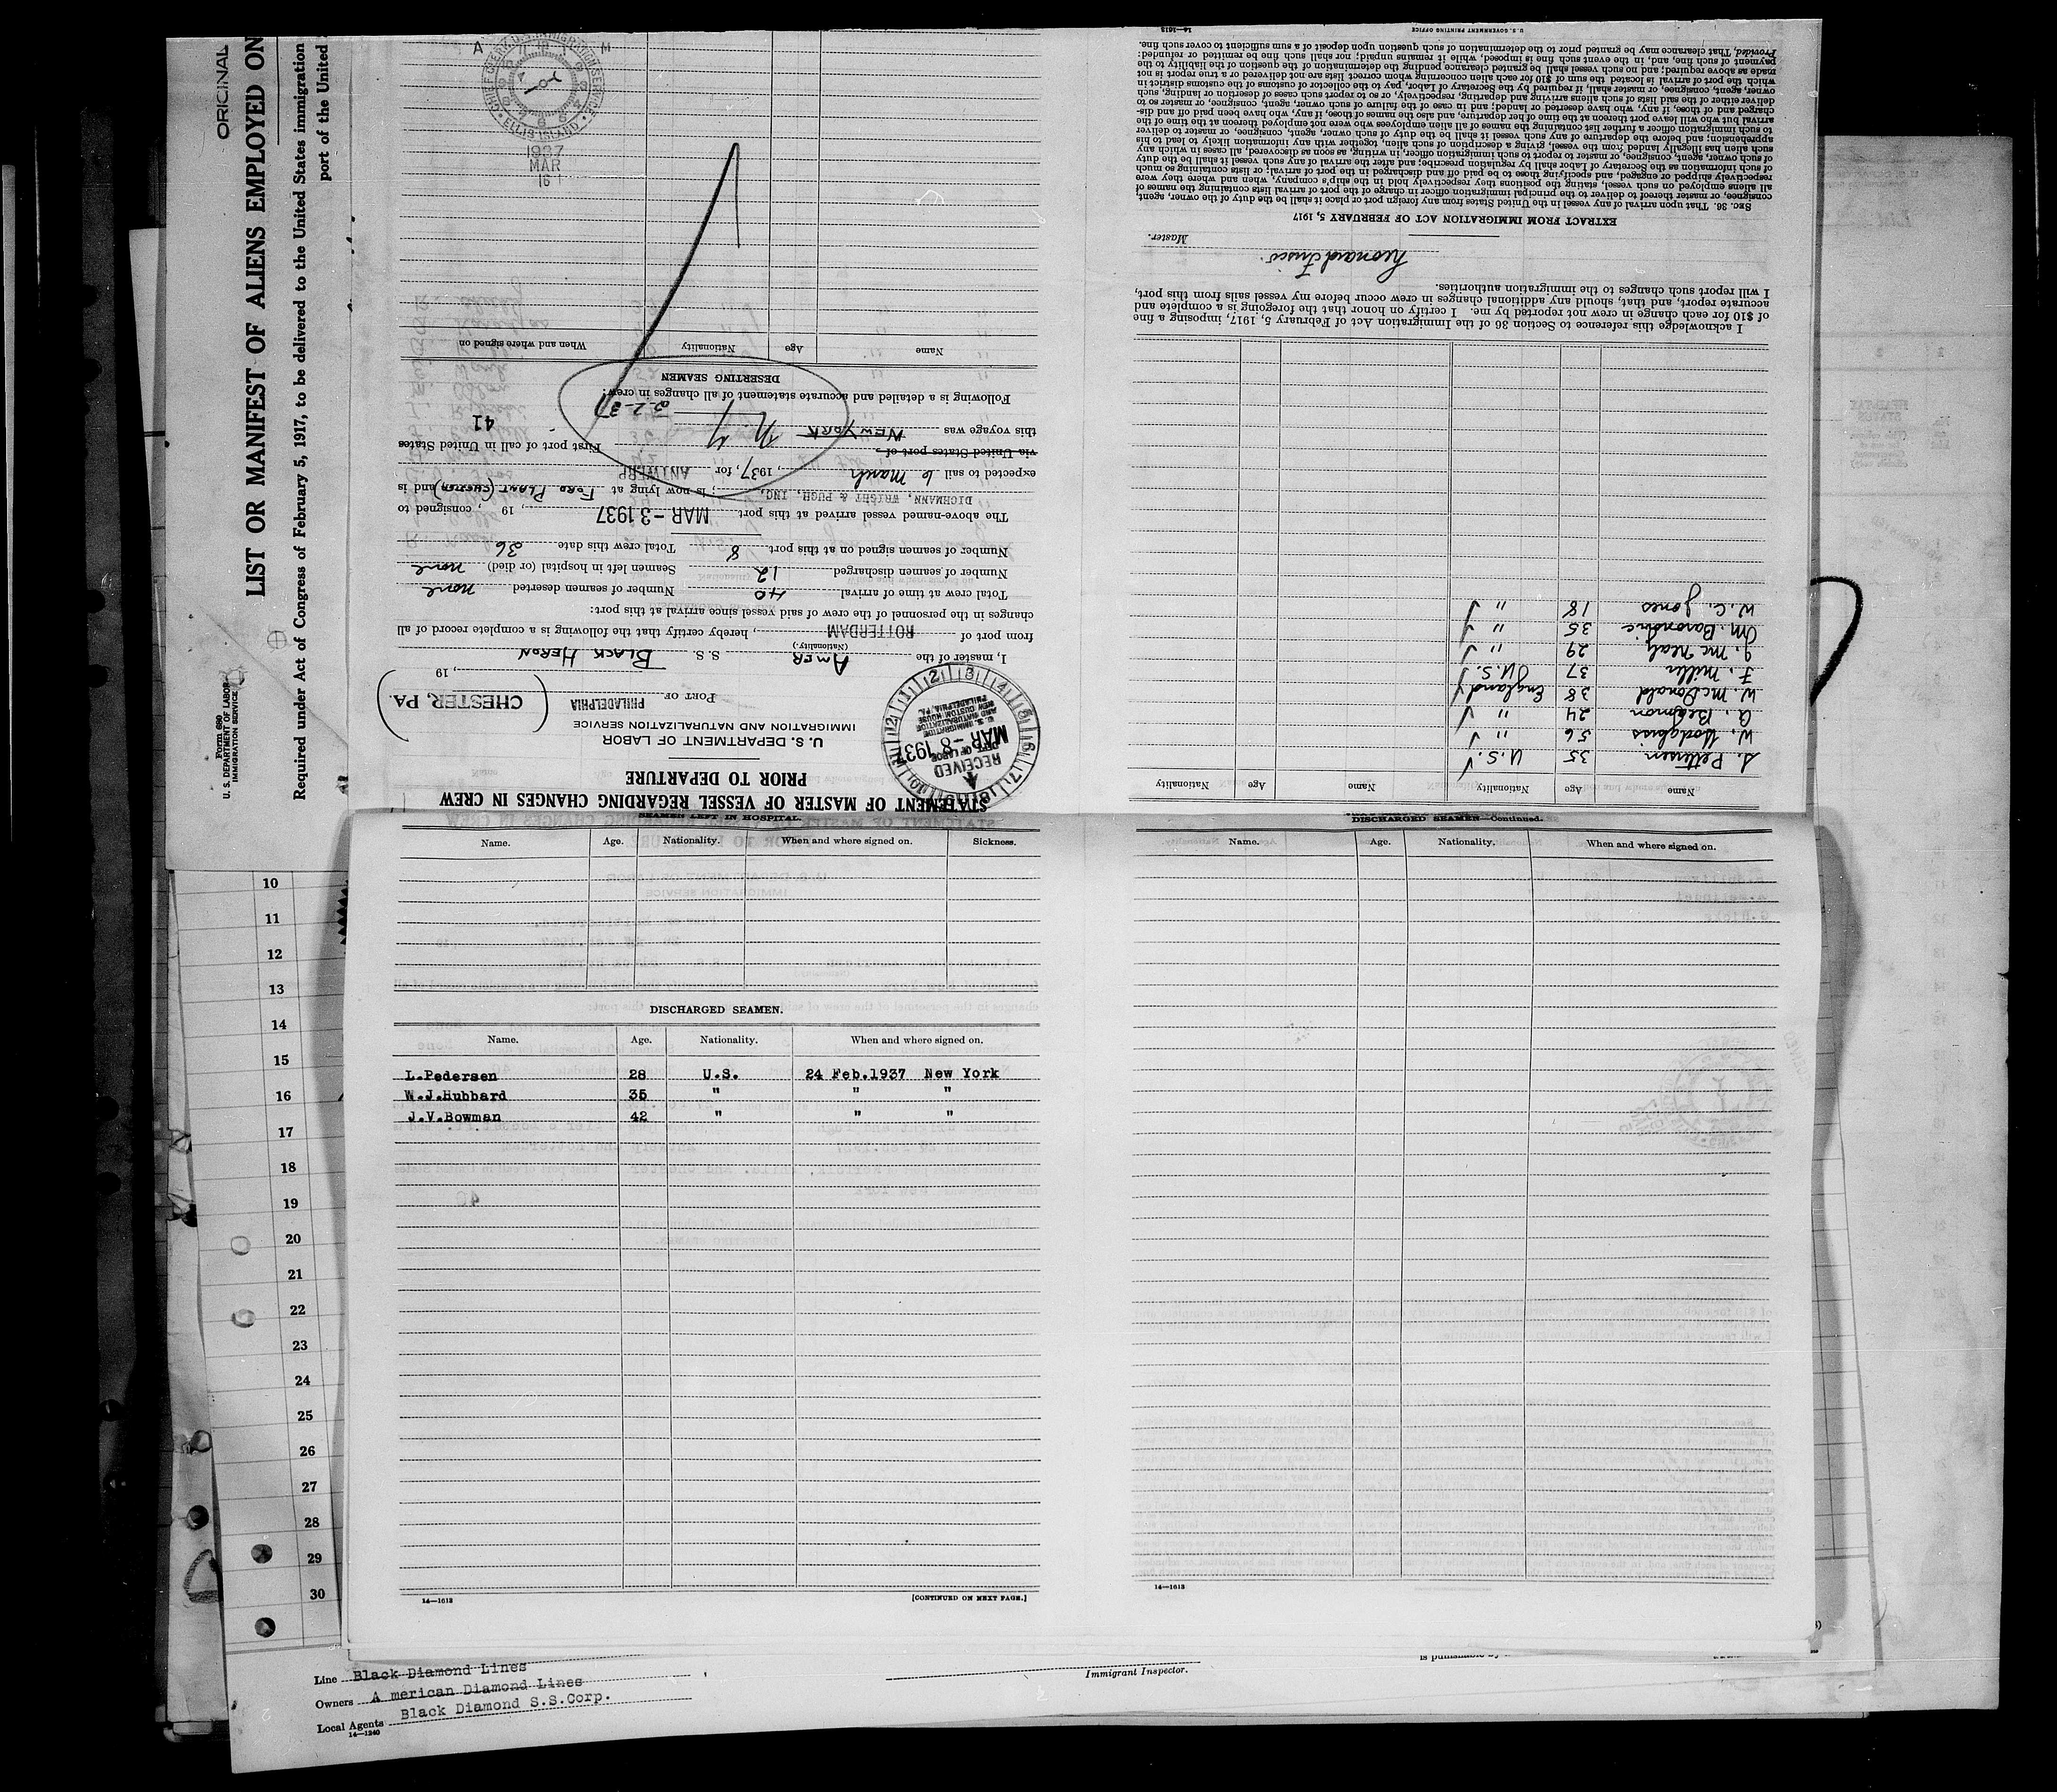 ORIGINAL
LIST OR MANIFEST OF ALIENS EMPLOYED ON
Required under Act of Congress of February 5, 1917, to be delivered to the United States immigration
port of the United
Form 680
U. S. DEPARTMENT OF LABOR
IMMIGRATION SERVICE
STATEMENT OF MASTER OF VESSEL REGARDING CHANGES IN CREW
PRIOR TO DEPARTURE
U. S. DEPARTMENT OF LABOR
IMMIGRATION AND NATURALIZATION SERVICE
RECEIVED
MAR - 8 1937
DEPT OF LABOR
U. S. IMMIGRATION
AND NATURALIZATION
NEW CUSTOM HOUSE
PHILADELPHIA, PA.
PORT OF PHILADELPHIA (CHESTER, PA.)
, 19
I, master of the AMER S. S. BLACK HERON
(Nationality.)
from port of ROTTERDAM, hereby certify that the following is a complete record of all
changes in the personnel of the crew of said vessel since arrival at this port:
Total crew at time of arrival 40 Number of seamen deserted none
Number of seamen discharged 12 Seamen left in hospital (or died) none
Number of seamen signed on at this port 8 Total crew this date 36
The above-named vessel arrived at this port MAR - 3 1937, 19 , consigned to
DICHMANN, WRIGHT & PUGH, INC., is now lying at FORD PLANT (CHESTER) and is
expected to sail 6 March, 1937, for ANTWERP
via United States port of First port of call in United States
this voyage was NEW YORK N.Y. 2-2-37 41
Following is a detailed and accurate statement of all changes in crew:
DESERTING SEAMEN
Name Age Nationality When and where signed on
CHIEF CLERK, U.S. IMMIGRATION SERVICE
ELLIS ISLAND
A M
1937
MAR
16
Name Age Nationality Name Age Nationality
S. Pettersen 35 U.S.
W. Hodgkiss 56 "
A. Beaman 24 "
W. McDonald 38 England
F. Miller 37 U.S.
J. McNealy 29 "
35 "
W. C. Jones 18 "
I acknowledge this reference to Section 36 of the Immigration Act of February 5, 1917, imposing a fine
of $10 for each change in crew not reported by me. I certify on honor that the foregoing is a complete and
accurate report, and that, should any additional changes in crew occur before my vessel sails from this port,
I will report such changes to the immigration authorities.
Leonard Fusco.
Master.
EXTRACT FROM IMMIGRATION ACT OF FEBRUARY 5, 1917
SEC. 36. That upon arrival of any vessel in the United States from any foreign port or place it shall be the duty of the owner, agent,
consignee, or master thereof to deliver to the principal immigration officer in charge of the port of arrival lists containing the names of
all aliens employed on such vessel, stating the positions they respectively hold in the ship's company, when and where they were
respectively shipped or engaged, and specifying those to be paid off and discharged in the port of arrival; or lists containing so much
of such information as the Secretary of Labor shall by regulation prescribe; and after the arrival of any such vessel it shall be the duty
of such owner, agent, consignee, or master to report to such immigration officer, in writing, as soon as discovered, all cases in which any
such alien has illegally landed from the vessel, giving a description of such alien, together with any information likely to lead to his
apprehension; and before the departure of any such vessel it shall be the duty of such owner, agent, consignee, or master to deliver
to such immigration officer a further list containing the names of all alien employees who were not employed thereon at the time of the
arrival but who will leave port thereon at the time of her departure, and also the names of those, if any, who have been paid off and dis-
charged and of those, if any, who have deserted or landed; and in case of the failure of such owner, agent, consignee, or master so to
deliver either of the said lists of such aliens arriving and departing, respectively, or so to report such cases of desertion or landing, such
owner, agent, consignee, or master shall, if required by the Secretary of Labor, pay to the collector of customs of the customs district in
which the port of arrival is located the sum of $10 for each alien concerning whom correct lists are not delivered or a true report is not
made as above required; and no such vessel shall be granted clearance pending the determination of the question of the liability to the
payment of such fine, and, in the event such fine is imposed, while it remains unpaid; nor shall such fine be remitted or refunded:
Provided, That clearance may be granted prior to the determination of such question upon deposit of a sum sufficient to cover such fine.
14—1613 U. S. GOVERNMENT PRINTING OFFICE
SEAMEN LEFT IN HOSPITAL.
Name. Age. Nationality. When and where signed on. Sickness.
DISCHARGED SEAMEN.
Name. Age. Nationality. When and where signed on.
L.Pedersen 28 U.S. 24 Feb.1937 New York
W.J.Hubbard 35 " " "
J.V.Bowman 42 " " "
14—1613 [CONTINUED ON NEXT PAGE.]
DISCHARGED SEAMEN—Continued.
Name. Age. Nationality. When and where signed on.
14—1613
10
11
12
13
14
15
16
17
18
19
20
21
22
23
24
25
26
27
28
29
30
Line Black Diamond Lines
Owners A merican Diamond Lines
Local Agents Black Diamond S.S.Corp.
14—1240
Immigrant Inspector.